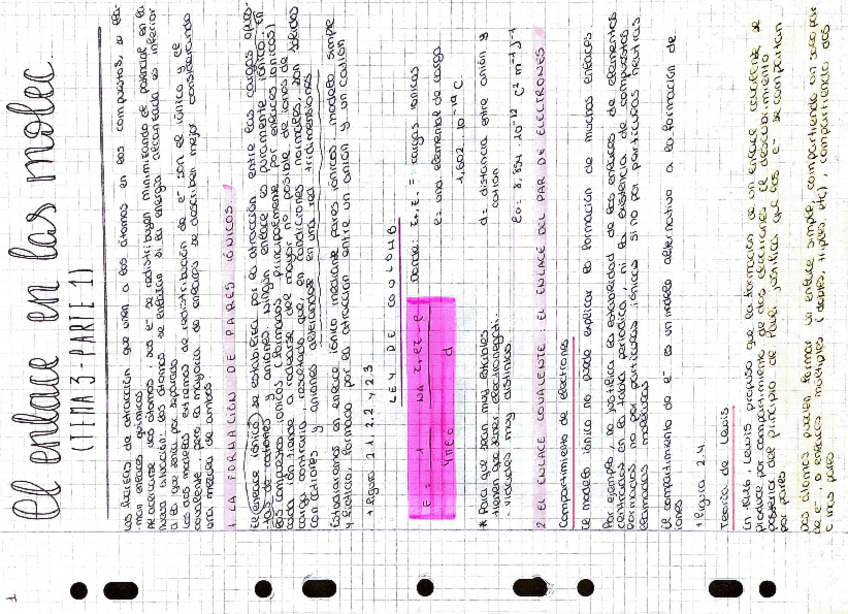 1
El enlace en las molec
(TEMA 3 - PARTE 1)
Las fuerzas de atracción que unen a los átomos en los compuestos, se lla-
-man enlaces químicos
Al acercarse los átomos, sus e⁻ se redistribuyen minimizando de potencial en la
nueva situación: los átomos se enlazan si la energía alcanzada es inferior
a la que tenía por separado
Los dos modelos extremos de redistribución de e⁻ son el iónico y el
covalente, pero la mayoría de enlaces se describen mejor considerando
una mezcla de ambos
1. LA FORMACIÓN DE PARES IÓNICOS:
El enlace iónico se establece por la atracción entre las cargas opues-
-tas de cationes y aniones. Ningún enlace es puramente iónico. En
los compuestos iónicos (formados principalmente por enlaces iónicos)
cada ión tiende a rodearse del mayor nº posible de iones de
carga contraria, resultado que, en condiciones normales, son sólidos
con cationes y aniones alternando en una red tridimensiones
Estudiaremos en enlace iónico mediante pares iónicos, modelo simple
y ficticio, formado por la atracción entre un anión y un catión
+ figura 2.1, 2.2 y 2.3
LEY DE COULOMB
E = 1 / 4πε₀ · NA z₊ z₋ e / d
Donde: z₊, z₋ = cargas iónicas
e = una elemental de carga
1,602 · 10⁻¹⁹ C
d = distancia entre anión y
catión
ε₀ = 8,854 · 10⁻¹² C² m⁻¹ J⁻¹
* Para que sean muy estables
tienen que tener electronegati-
-vidades muy distintas
2. EL ENLACE COVALENTE: EL ENLACE DEL PAR DE ELECTRONES
Compartimiento de electrones
El modelo iónico no puede explicar la formación de muchos enlaces.
Por ejemplo, no justifica la estabilidad de los enlaces de elementos
centrados en la tabla periódica, ni la existencia de compuestos
formados no por partículas iónicas si no por partículas neutras
llamadas moléculas
El compartimento de e⁻ es un modelo alternativo a la formación de
iones
+ figura 2.4.
Teoría de Lewis
En 1916, Lewis propuso que la formación de un enlace covalente se
produce por compartimiento de dos electrones. El descubrimiento
posterior del principio de Pauli justifica que los e⁻ se compartan
por pares
Dos átomos pueden formar un enlace simple, compartiendo un solo par
de e⁻, o enlaces múltiples (dobles, triples etc), compartiendo dos
o más pares